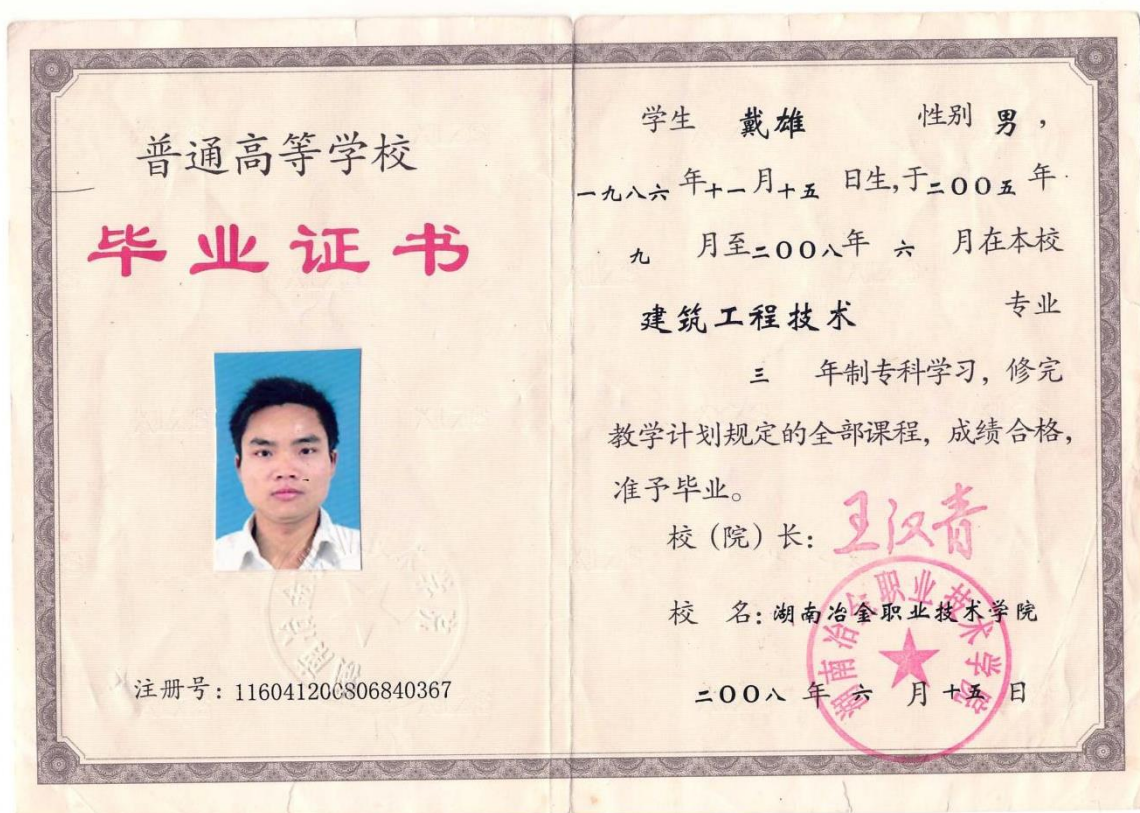 普通高等学校
毕业证书
注册号：116041200806840367
学生 戴雄 性别 男，
一九八六 年十一月十五 日生,于二00五 年
九 月至二00八年 六 月在本校
建筑工程技术 专业
三 年制专科学习，修完
教学计划规定的全部课程，成绩合格，
准予毕业。
校（院）长：王汉青
校 名：湖南冶金职业技术学院
二00八 年 六 月 十五 日
湖南冶金职业技术学院